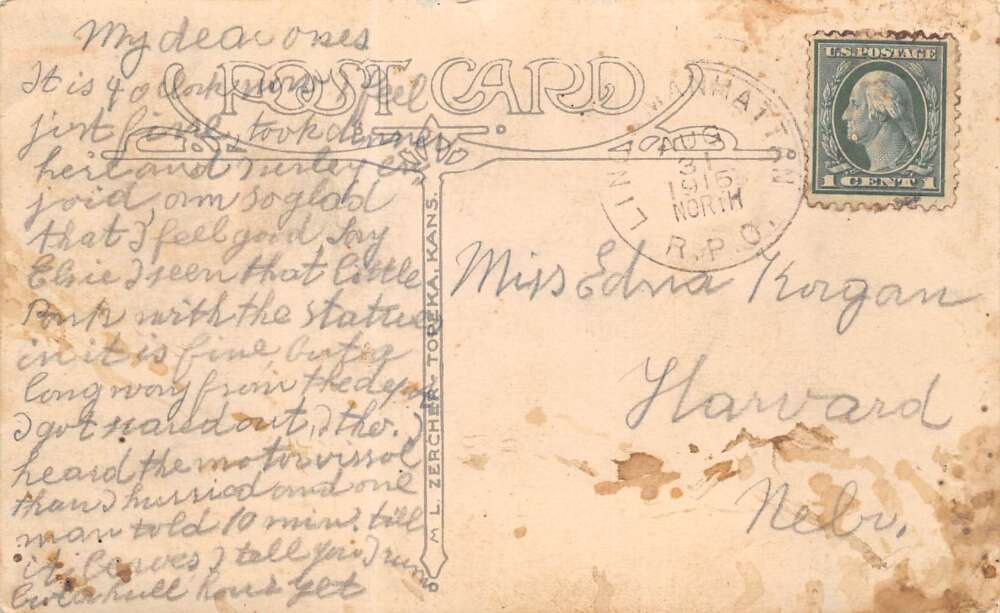 My dear ones
POST CARD
It is 4 o clock now I feel
just fine, took dinner
heir and surley en
joid, am so glad
that I feel good Say
Elsie I seen that little
Park with the stattues
in it is fine but a
long way from the depo
I got scared out, I tho.
heard the motor vissol
than I hurried and one
man told 10 min. till
it leaves, I tell you I run
hull hour yet
M. L. ZERCHER - TOPEKA, KANS.
LINC MANHATTAN
AUG
31
1915
NORTH
R.P.O.
U.S. POSTAGE
1 CENT 1
Miss Edna Korgan
Harvard
Nebr.